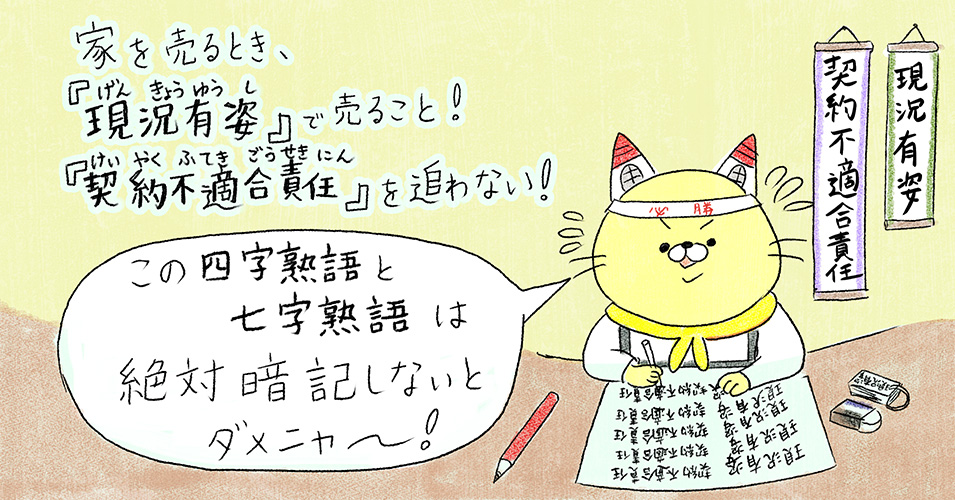 家を売るとき、
げんきょうゆうし
『現況有姿』で売ること!
けいやくふてきごうせきにん
『契約不適合責任』を追わない!
この四字熟語と
七字熟語は
絶対暗記しないと
ダメニャ〜!
必勝
契約不適合責任
現況有姿
現況有姿
現況有姿
現況有姿
現況有姿
現況有姿
契約不適合責任
契約不適合責任
契約不適合責任
契約不適合責任
契約不適合責任